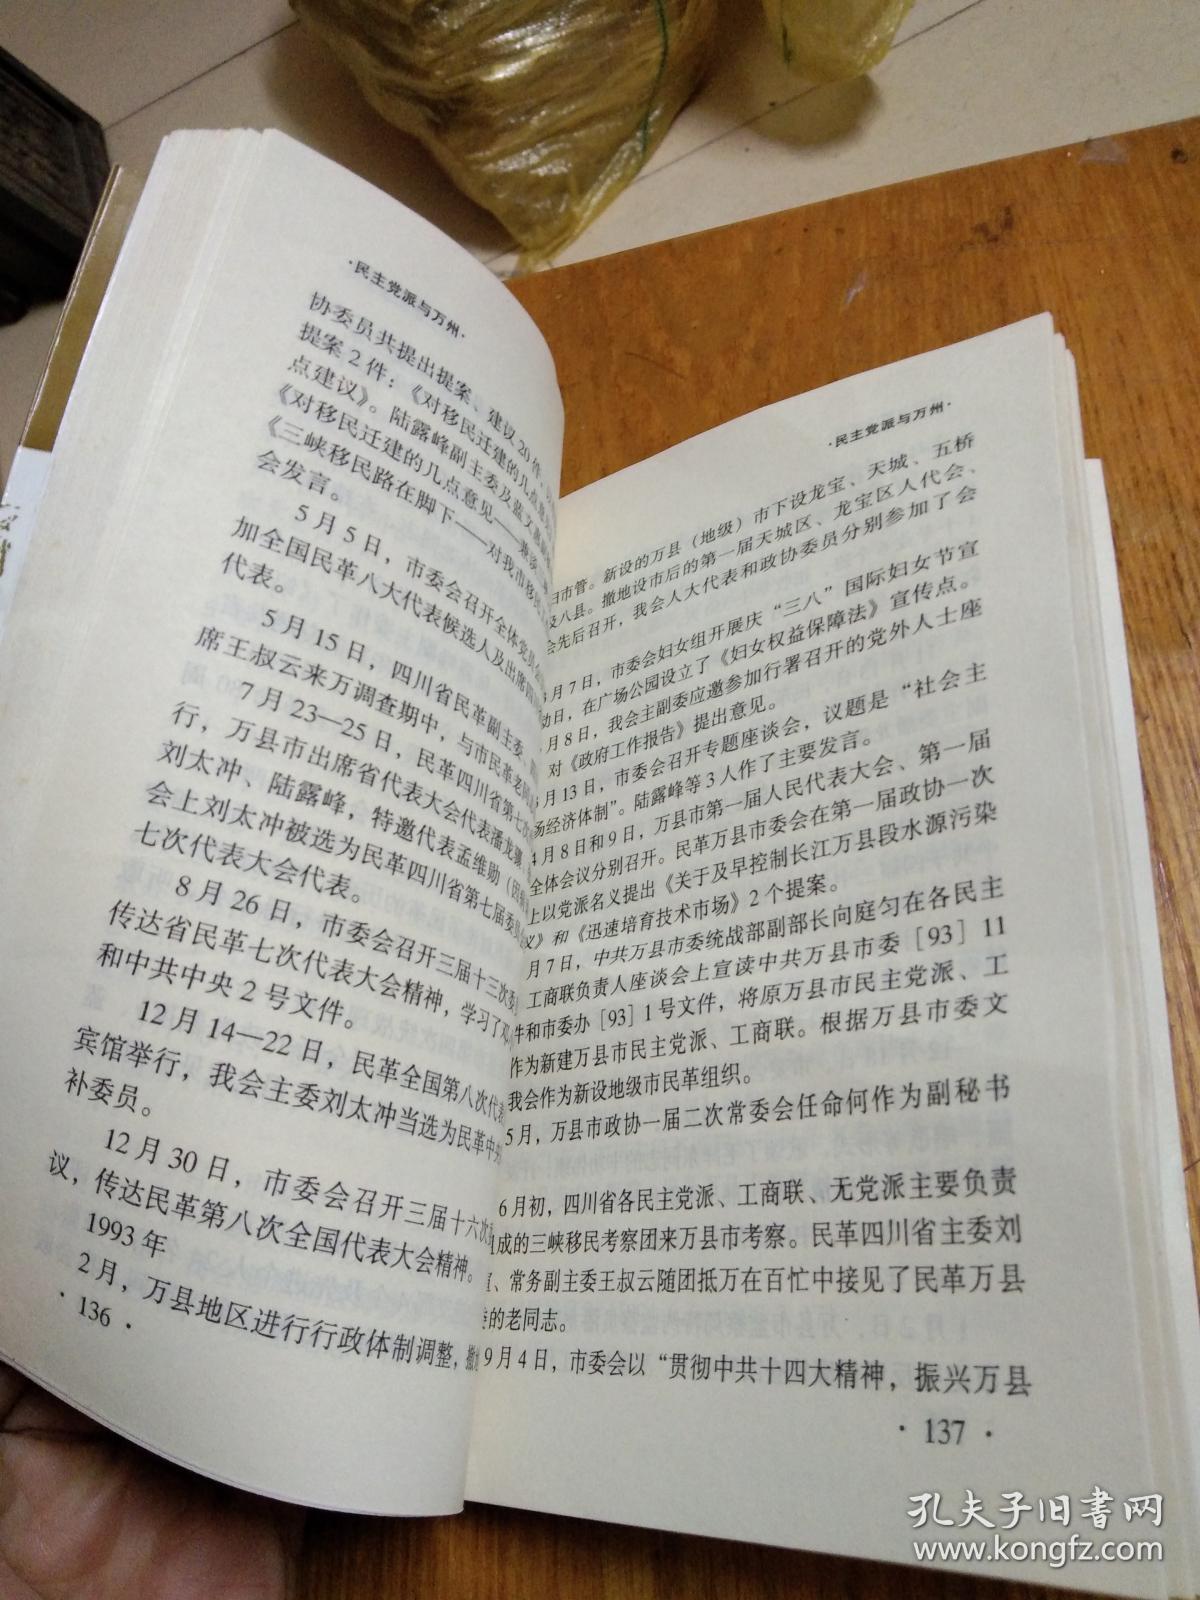 ·民主党派与万州·
协委员共提出提案、建议20件，
提案2件：《对移民迁建的几点意见
点建议》。陆露峰副主委及蓝
《对移民迁建的几点意见——兼谈
《三峡移民路在脚下——对我市移民
会发言。
5月5日，市委会召开全体党员会
加全国民革八大代表候选人及出席四
代表。
5月15日，四川省民革副主委、
席王叔云来万调查期中，与市民革老同
7月23—25日，民革四川省第七次
行，万县市出席省代表大会代表潘龙骧、
刘太冲、陆露峰，特邀代表孟维勋（因
会上刘太冲被选为民革四川省第七届委员会
七次代表大会代表。
8月26日，市委会召开三届十三次委
传达省民革七次代表大会精神，学习了邓
和中共中央2号文件。
12月14—22日，民革全国第八次代表
宾馆举行，我会主委刘太冲当选为民革中央
补委员。
12月30日，市委会召开三届十六次
议，传达民革第八次全国代表大会精神。
1993年
2月，万县地区进行行政体制调整，撤
·136·
·民主党派与万州·
归市管。新设的万县（地级）市下设龙宝、天城、五桥
及八县。撤地设市后的第一届天城区、龙宝区人代会、
会先后召开，我会人大代表和政协委员分别参加了会
月7日，市委会妇女组开展庆“三八”国际妇女节宣
动日，在广场公园设立了《妇女权益保障法》宣传点。
月8日，我会主副委应邀参加行署召开的党外人士座
对《政府工作报告》提出意见。
月13日，市委会召开专题座谈会，议题是“社会主
场经济体制”。陆露峰等3人作了主要发言。
4月8日和9日，万县市第一届人民代表大会、第一届
全体会议分别召开。民革万县市委会在第一届政协一次
上以党派名义提出《关于及早控制长江万县段水源污染
议》和《迅速培育技术市场》2个提案。
月7日，中共万县市委统战部副部长向庭匀在各民主
工商联负责人座谈会上宣读中共万县市委［93］11
件和市委办［93］1号文件，将原万县市民主党派、工
作为新建万县市民主党派、工商联。根据万县市委文
我会作为新设地级市民革组织。
5月，万县市政协一届二次常委会任命何作为副秘书
6月初，四川省各民主党派、工商联、无党派主要负责
成的三峡移民考察团来万县市考察。民革四川省主委刘
、常务副主委王叔云随团抵万在百忙中接见了民革万县
的老同志。
9月4日，市委会以“贯彻中共十四大精神，振兴万县
·137·
孔夫子旧书网
www.kongfz.com